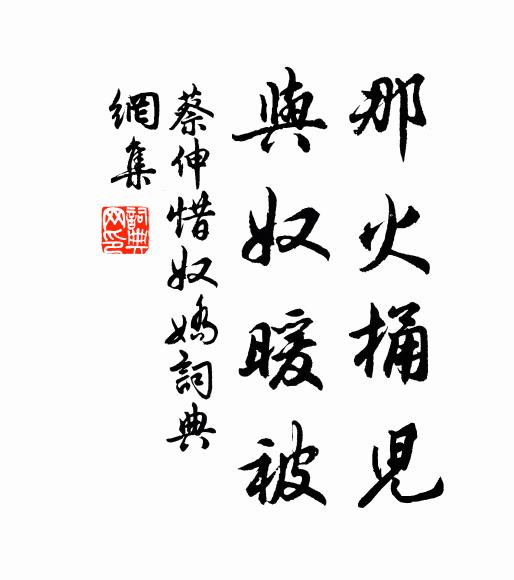 那火桶兒
與奴暖被
蔡伸惜奴嬌詞典
網集
詞典網印